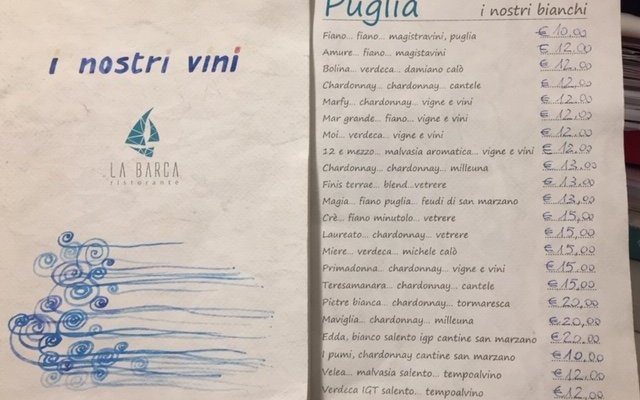 i nostri vini
LA BARCA
ristorante
Puglia
i nostri bianchi
Fiano... fiano... magistravini, puglia € 10.00
Amure... fiano... magistavini € 12.00
Bolina... verdeca... damiano calò € 12.00
Chardonnay... chardonnay... cantele € 12.00
Marfy... chardonnay... vigne e vini € 12.00
Mar grande... fiano... vigne e vini € 12.00
Moi... verdeca... vigne e vini € 12.00
12 e mezzo... malvasia aromatica... vigne e vini € 12.00
Chardonnay... chardonnay... milleuna € 13.00
Finis terrae... blend..vetrere € 13.00
Magia... fiano puglia... feudi di san marzano € 13,00
Crè... fiano minutolo... vetrere € 15,00
Laureato... chardonnay... vetrere € 15.00
Miere... verdeca... michele calò € 15,00
Primadonna... chardonnay... vigne e vini € 15.00
Teresamanara... chardonnay... cantele € 15.00
Pietre bianca... chardonnay... tormaresca € 20,00
Maviglia... chardonnay... milleuna € 20,00
Edda, bianco salento igp cantine san marzano € 20.00
I pumi, chardonnay cantine san marzano € 10.00
Velea... malvasia salento... tempoalvino € 12.00
Verdeca IGT salento... tempoalvino € 12,00